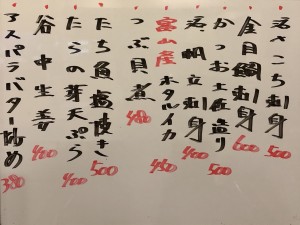 活さこち刺身 500
金目鯛刺身 600
かつお土佐造り 500
活帆立刺身 400
富山産ホタルイカ 450
つぶ貝煮 480
たち魚塩焼き 500
たらの芽天ぷら 400
谷中生姜 400
アスパラバター炒め 380